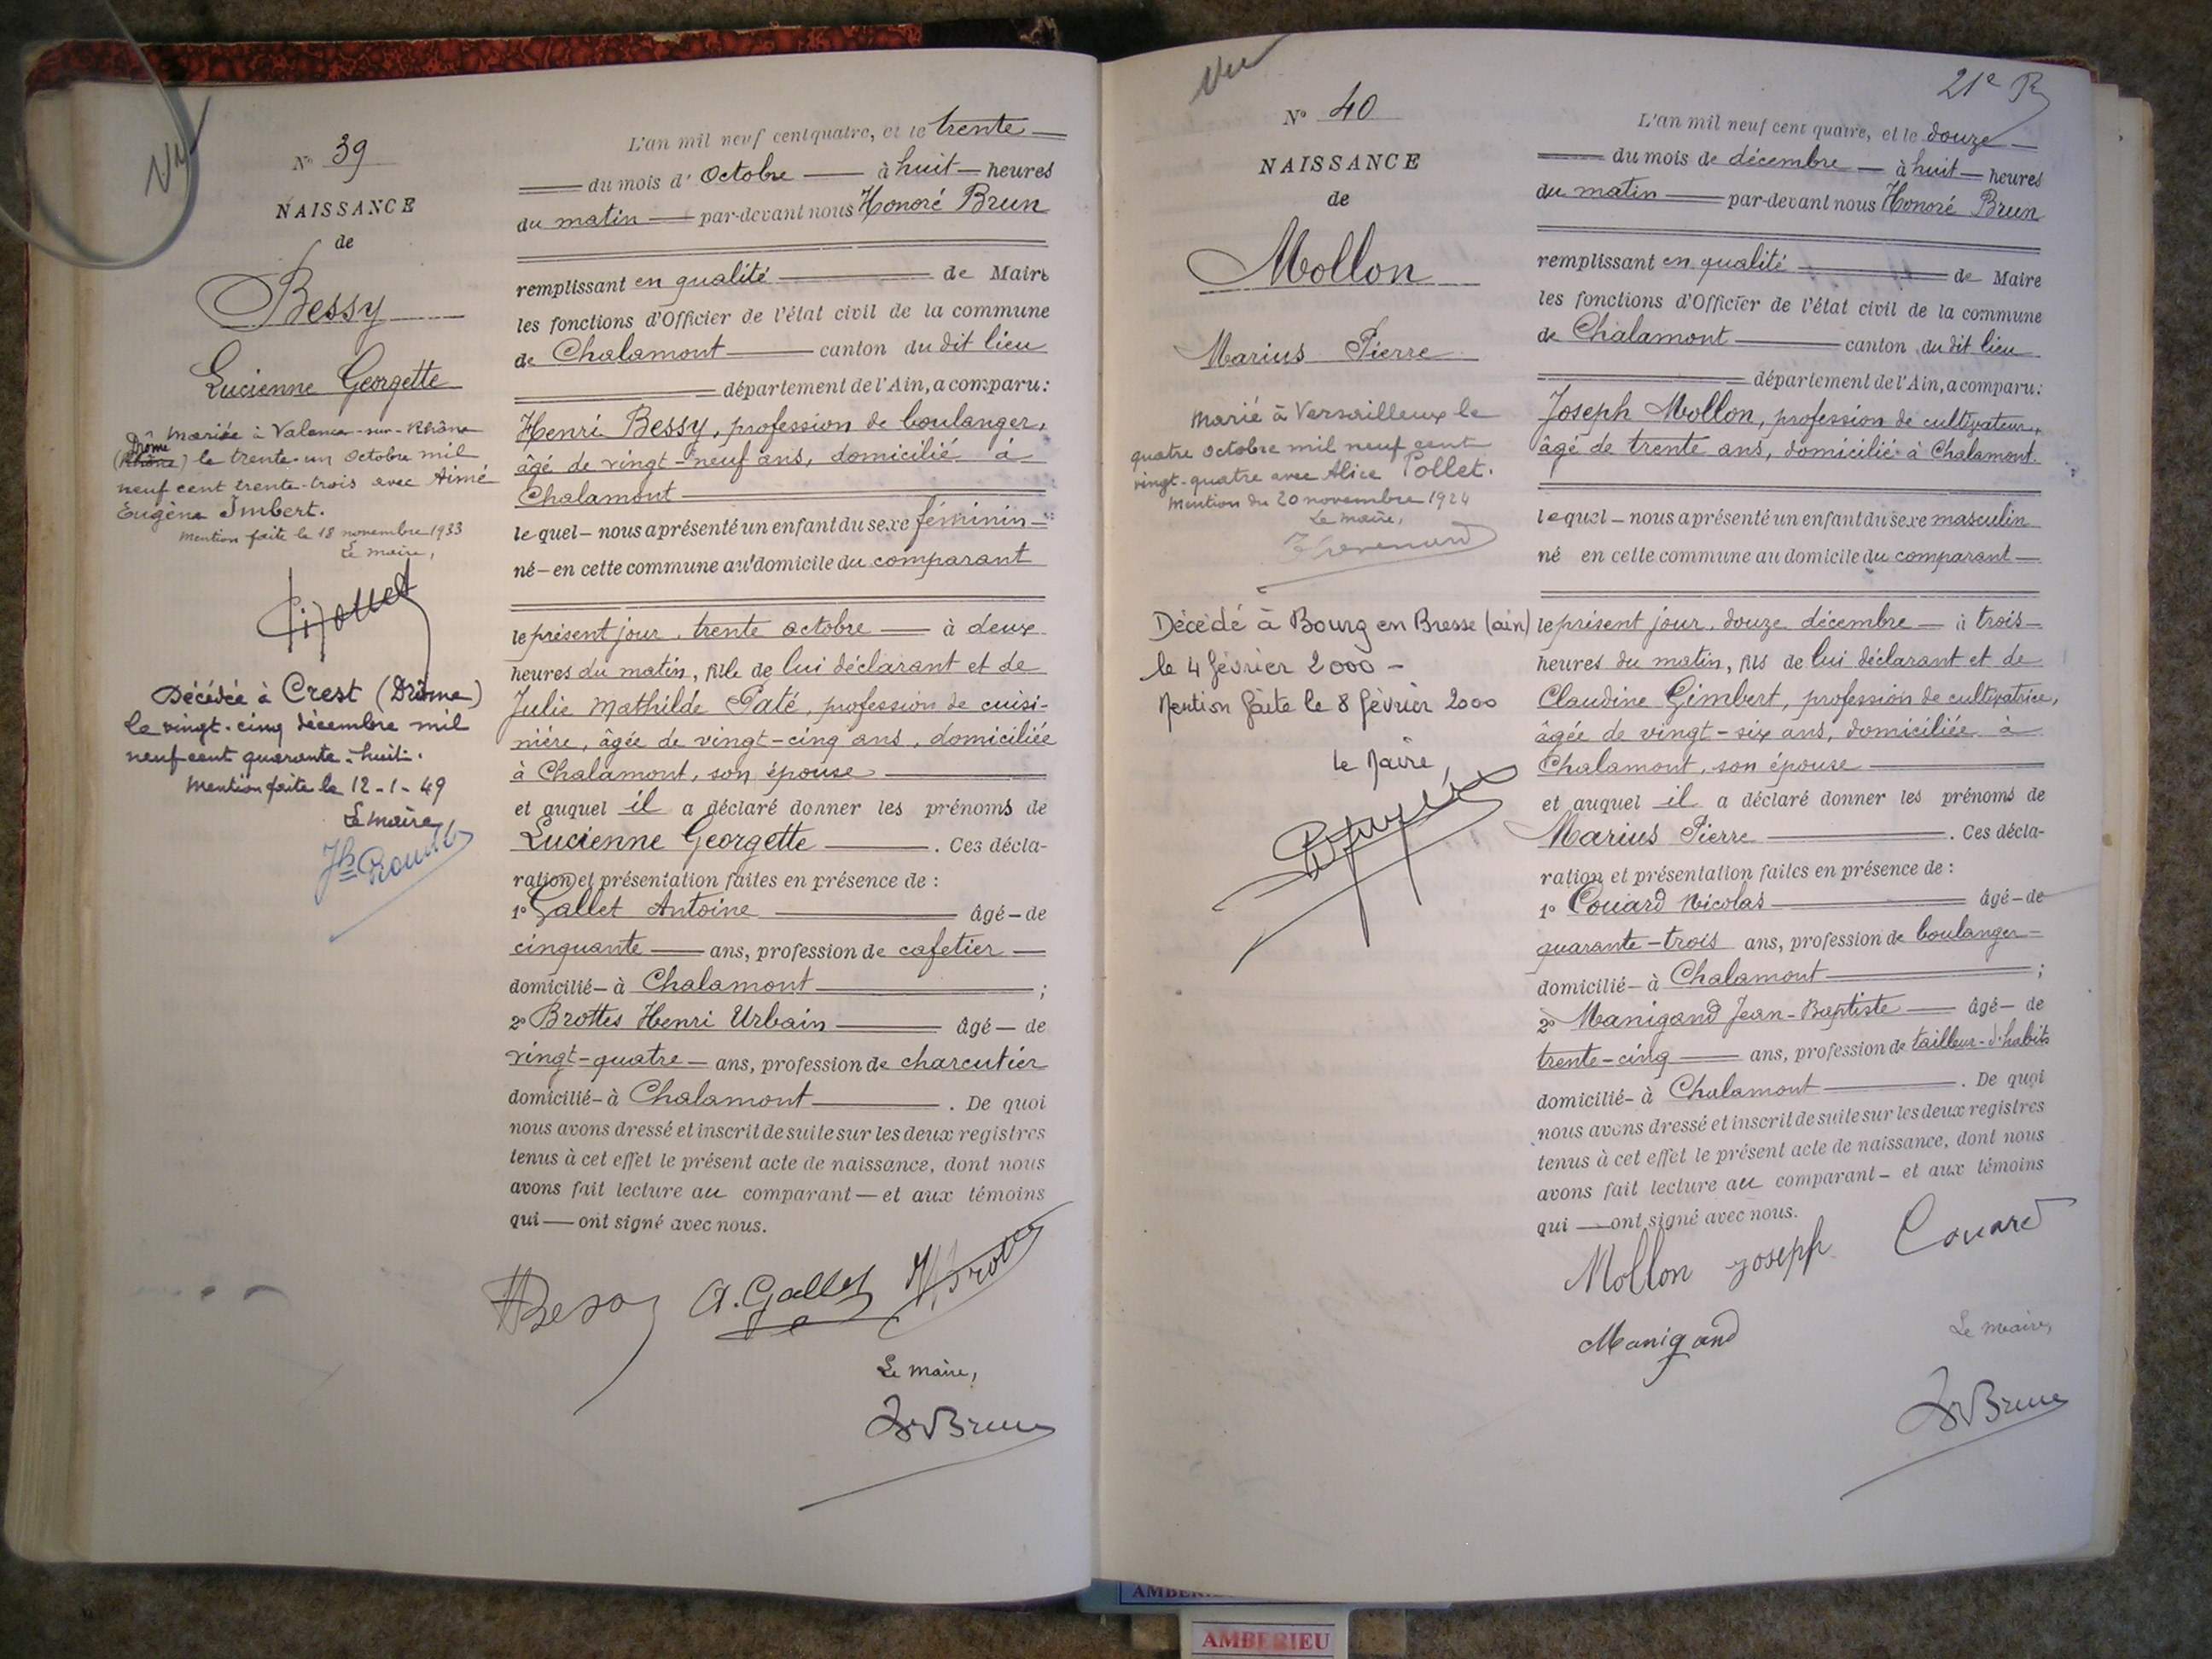 Vu
Nº 39
NAISSANCE
de
Bessy
Lucienne Georgette
Mariée à Valence-sur-Rhône
Drôme
(Rhône) le trente-un octobre mil
neuf cent trente-trois avec Aimé
Eugène Imbert.
Mention faite le 18 novembre 1933
Le maire,
Décédée à Crest (Drôme)
le vingt-cinq décembre mil
neuf cent quarante-huit.
Mention faite le 12-1-49
Le maire,
L'an mil neuf cent quatre, et le trente
du mois d' Octobre à huit heures
du matin par-devant nous Honoré Brun
remplissant en qualité de Maire
les fonctions d'Officier de l'état civil de la commune
de Chalamont canton du dit lieu
département de l'Ain, a comparu:
Henri Bessy, profession de boulanger,
âgé de vingt-neuf ans, domicilié à
Chalamont
le quel nous a présenté un enfant du sexe féminin
né en cette commune au domicile du comparant
le présent jour, trente octobre à deux
heures du matin, fille de lui déclarant et de
Julie Mathilde Paté, profession de cuisi-
nière, âgée de vingt-cinq ans, domiciliée
à Chalamont, son épouse
et auquel il a déclaré donner les prénoms de
Lucienne Georgette. Ces décla-
ration et présentation faites en présence de :
1º Gallet Antoine âgé de
cinquante ans, profession de cafetier
domicilié à Chalamont ;
2º Brottes Henri Urbain âgé de
vingt-quatre ans, profession de charcutier
domicilié à Chalamont. De quoi
nous avons dressé et inscrit de suite sur les deux registres
tenus à cet effet le présent acte de naissance, dont nous
avons fait lecture au comparant et aux témoins
qui ont signé avec nous.
HBessy A. Gallet
Le maire,
HBrun
Vu
21e R
Nº 40
NAISSANCE
de
Mollon
Marius Pierre
Marié à Versailleux le
quatre octobre mil neuf cent
vingt-quatre avec Alice Pollet.
Mention du 20 novembre 1924
Le maire,
Décédé à Bourg en Bresse (ain)
le 4 février 2000 -
Mention faite le 8 février 2000
Le Maire,
L'an mil neuf cent quatre, et le douze
du mois de décembre à huit heures
du matin par-devant nous Honoré Brun
remplissant en qualité de Maire
les fonctions d'Officier de l'état civil de la commune
de Chalamont canton du dit lieu
département de l'Ain, a comparu:
Joseph Mollon, profession de cultivateur,
âgé de trente ans, domicilié à Chalamont
lequel nous a présenté un enfant du sexe masculin
né en cette commune au domicile du comparant
le présent jour, douze décembre à trois
heures du matin, fils de lui déclarant et de
Claudine Gimbert, profession de cultivatrice,
âgée de vingt-six ans, domiciliée à
Chalamont, son épouse
et auquel il a déclaré donner les prénoms de
Marius Pierre. Ces décla-
ration et présentation faites en présence de :
1º Couard Nicolas âgé de
quarante-trois ans, profession de boulanger
domicilié à Chalamont ;
2º Manigand Jean-Baptiste âgé de
trente-cinq ans, profession de tailleur-d'habits
domicilié à Chalamont. De quoi
nous avons dressé et inscrit de suite sur les deux registres
tenus à cet effet le présent acte de naissance, dont nous
avons fait lecture au comparant et aux témoins
qui ont signé avec nous.
Mollon joseph Couard
Manigand
Le maire,
HBrun
AMBERIEU